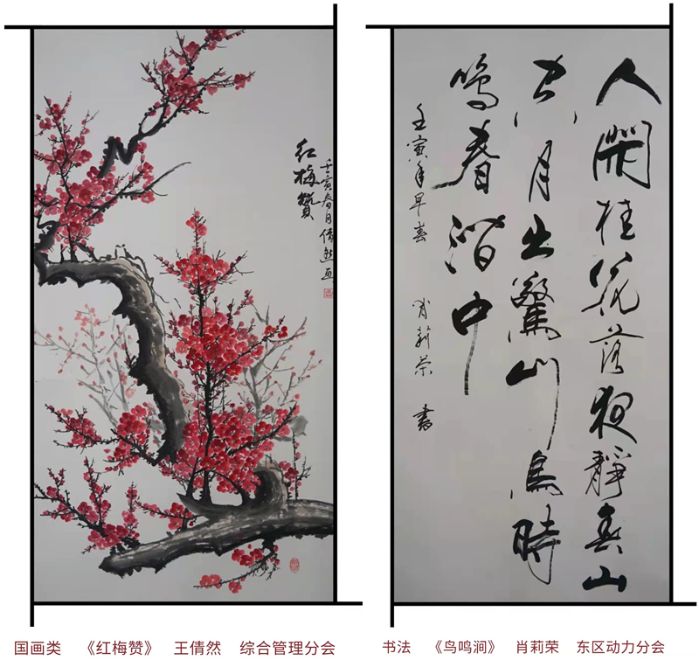 红梅赞
壬寅春月倩然画
人閒桂花落夜靜春山
空月出驚山鳥時
鳴春澗中
壬寅年早春 肖莉荣 書
国画类 《红梅赞》 王倩然 综合管理分会
书法 《鸟鸣涧》 肖莉荣 东区动力分会